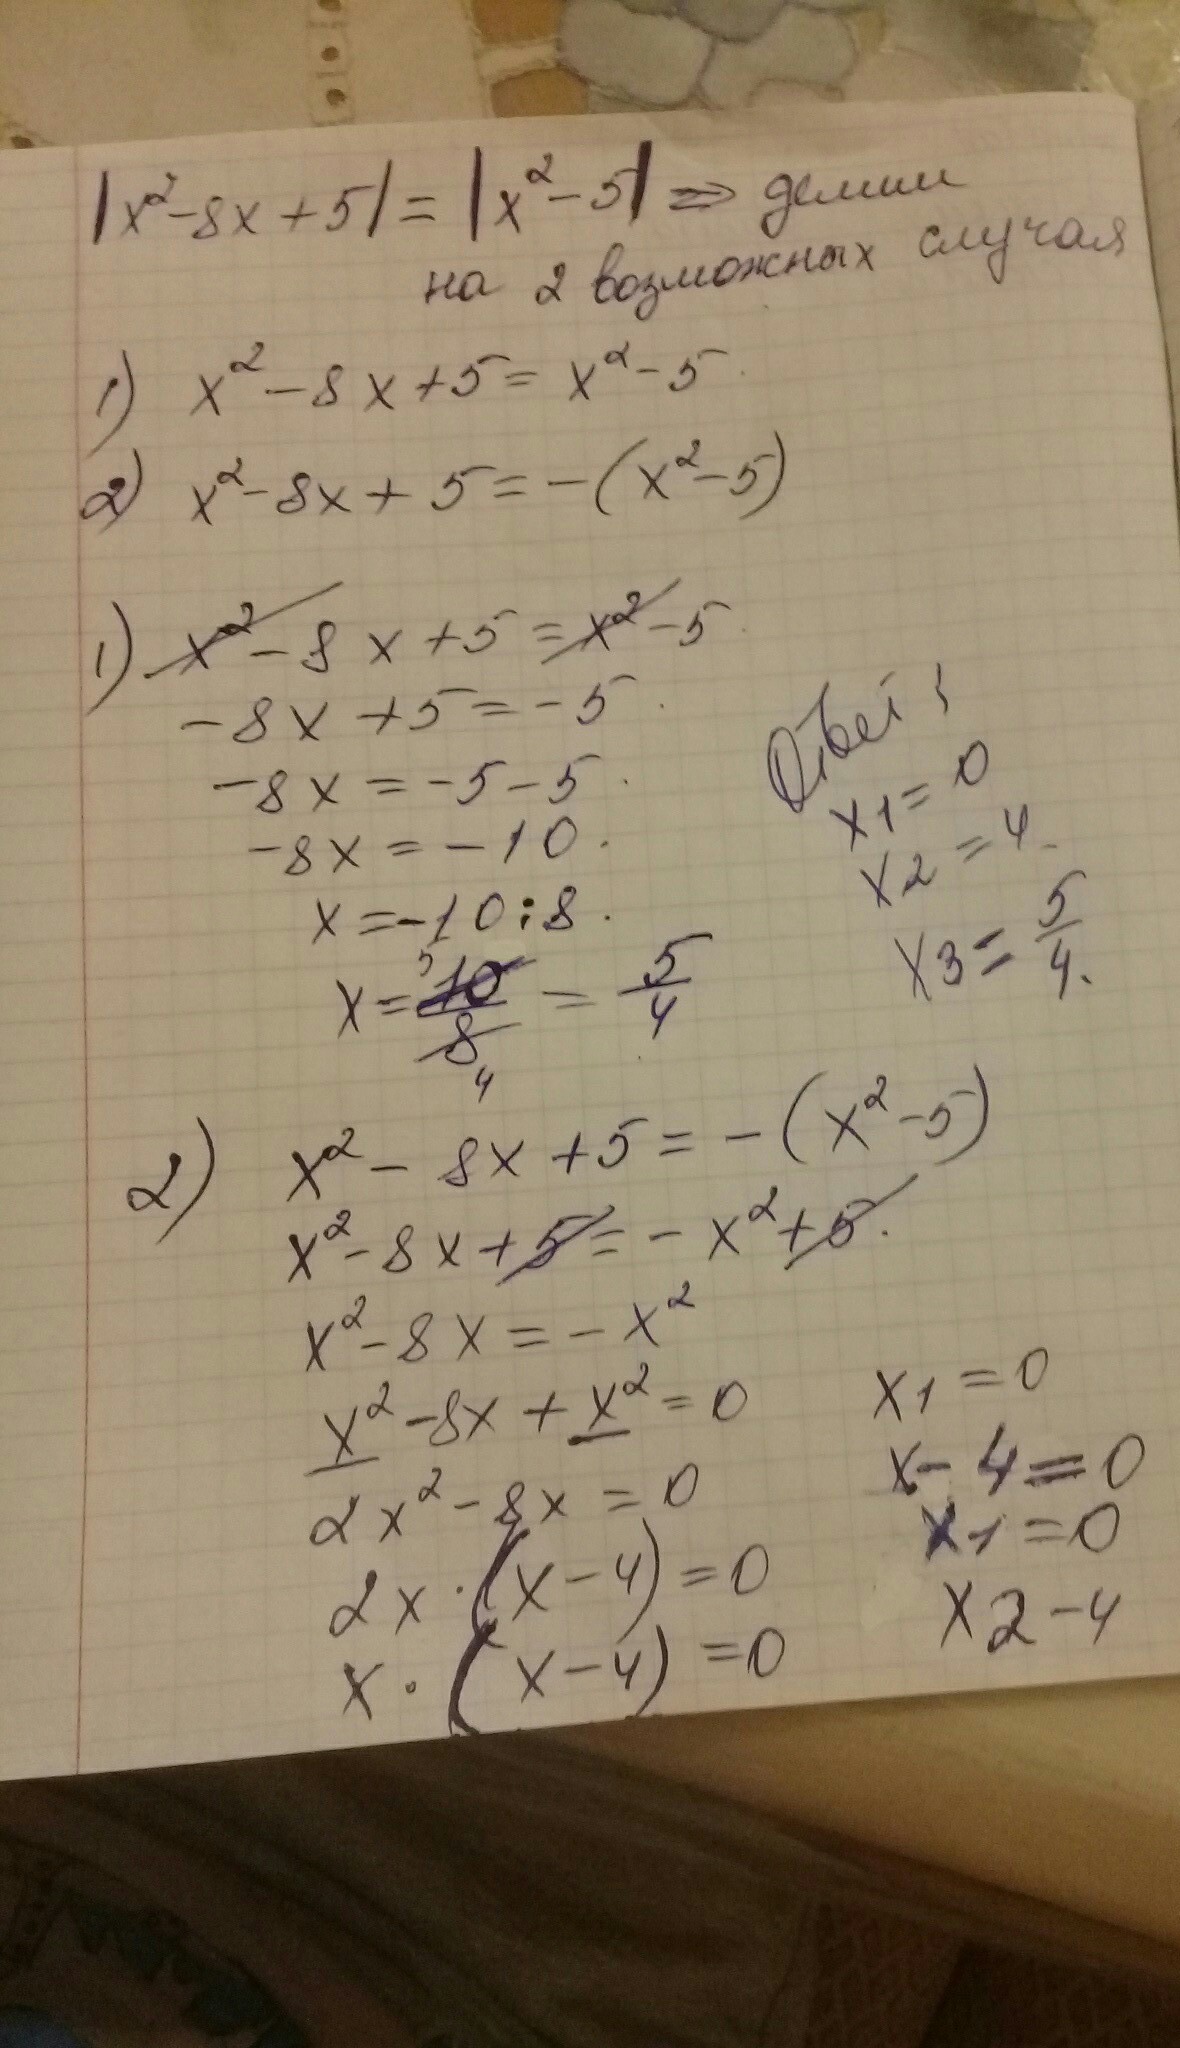 |x²-8x+5|=|x²-5| => делим
на 2 возможных случая
1) x²-8x+5=x²-5
2) x²-8x+5=-(x²-5)
1) x²-8x+5=x²-5
-8x+5=-5
-8x=-5-5
-8x=-10
x=-10:8
x=10/8=5/4
Ответ:
x1=0
x2=4
x3=5/4
2) x²-8x+5=-(x²-5)
x²-8x+5=-x²+5
x²-8x=-x²
x²-8x+x²=0
2x²-8x=0
2x·(x-4)=0
x·(x-4)=0
x1=0
x-4=0
x1=0
x2-4